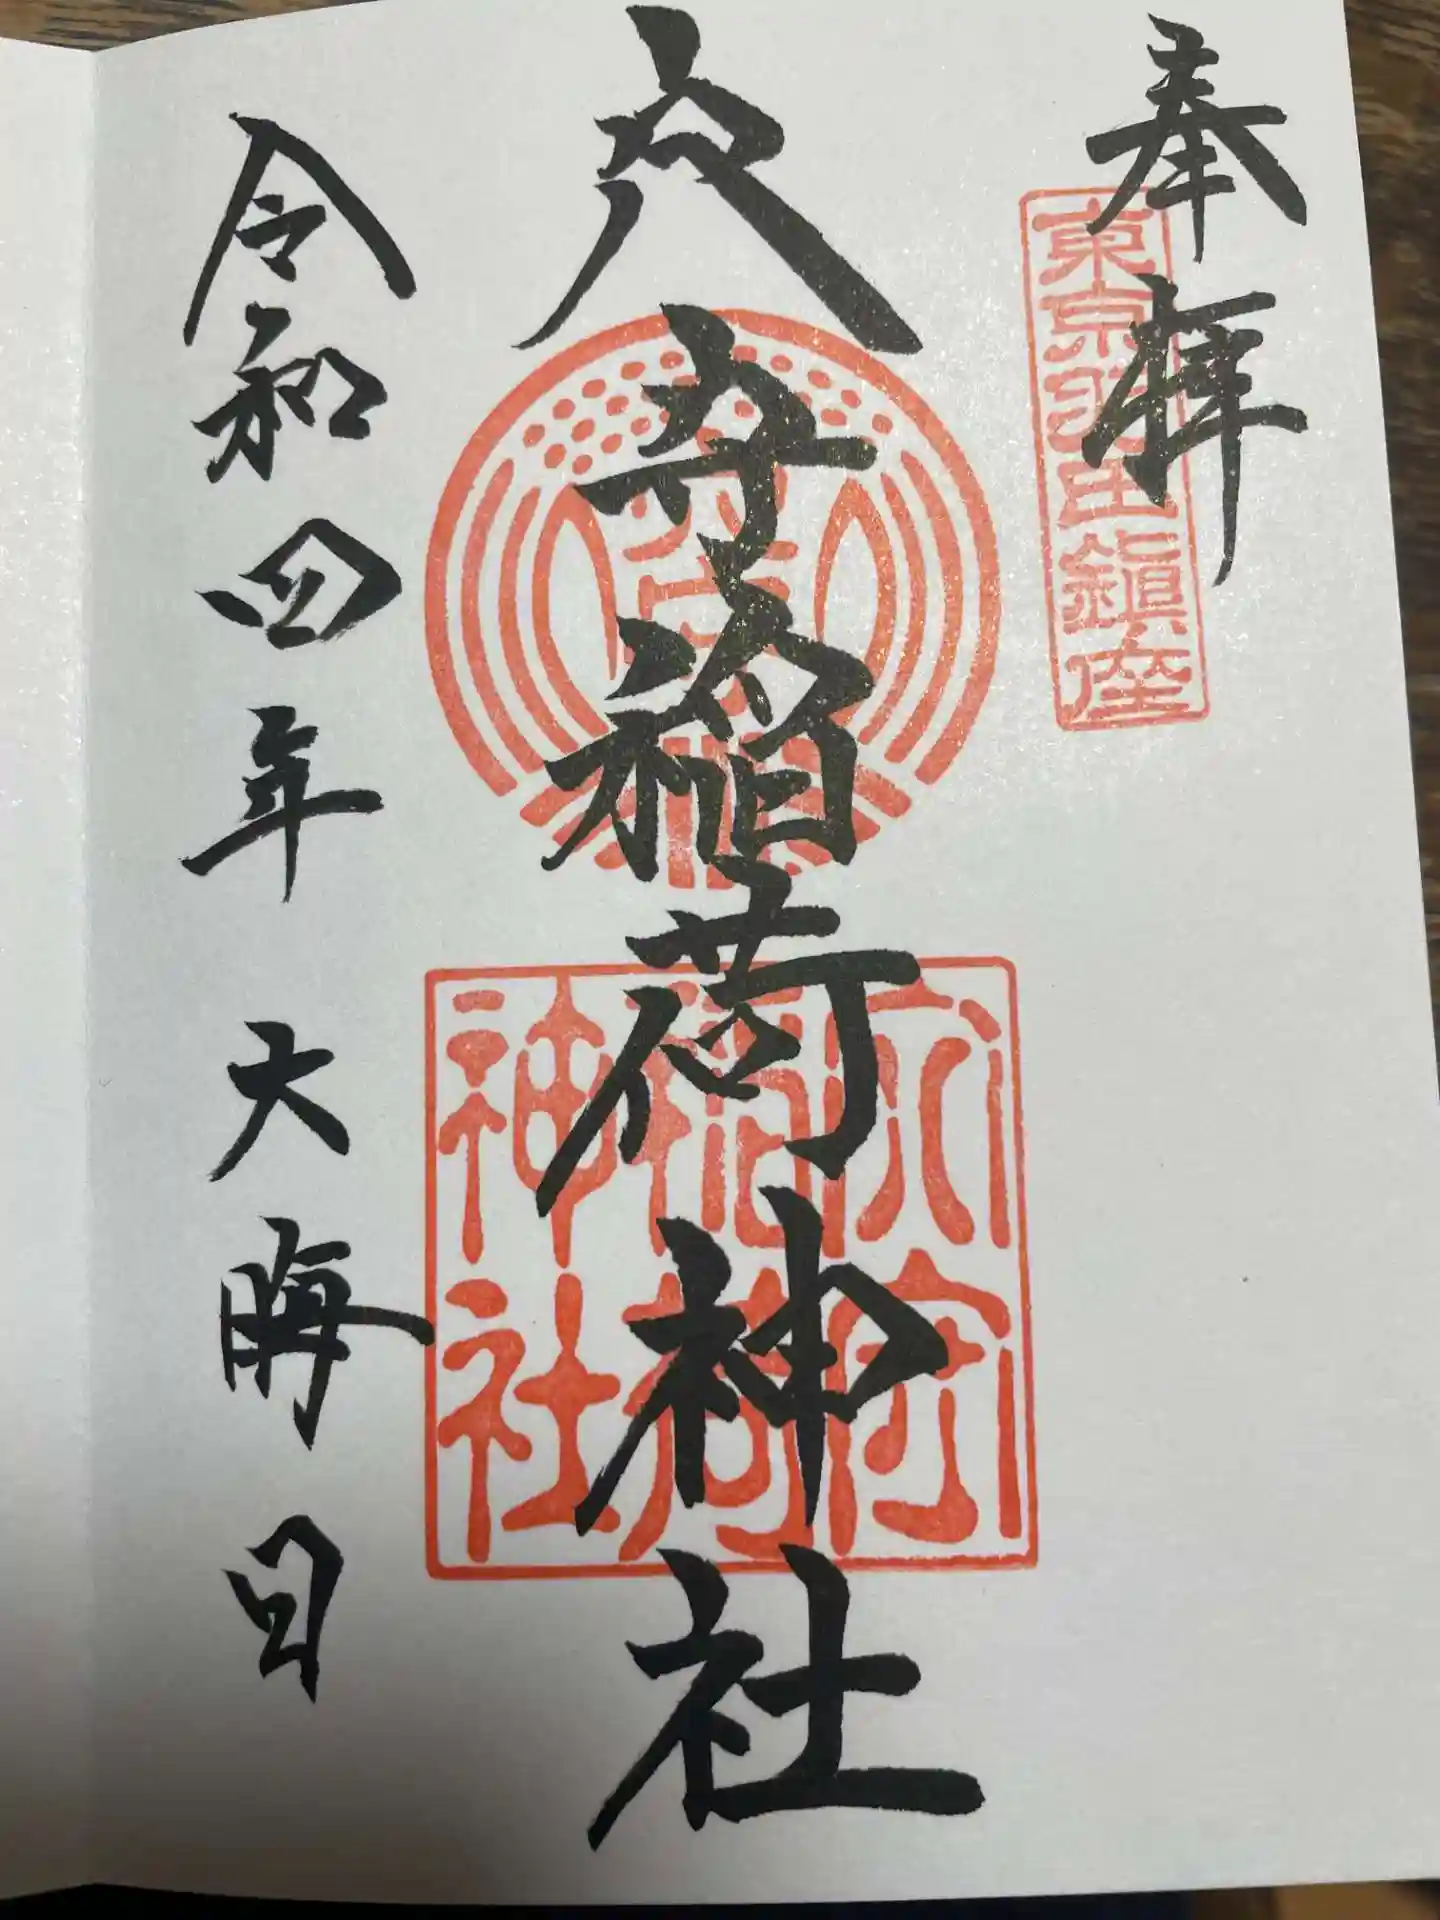 奉拝
東京羽田鎮座
穴守稲荷神社
穴守
稲荷
神社
令和四年大晦日